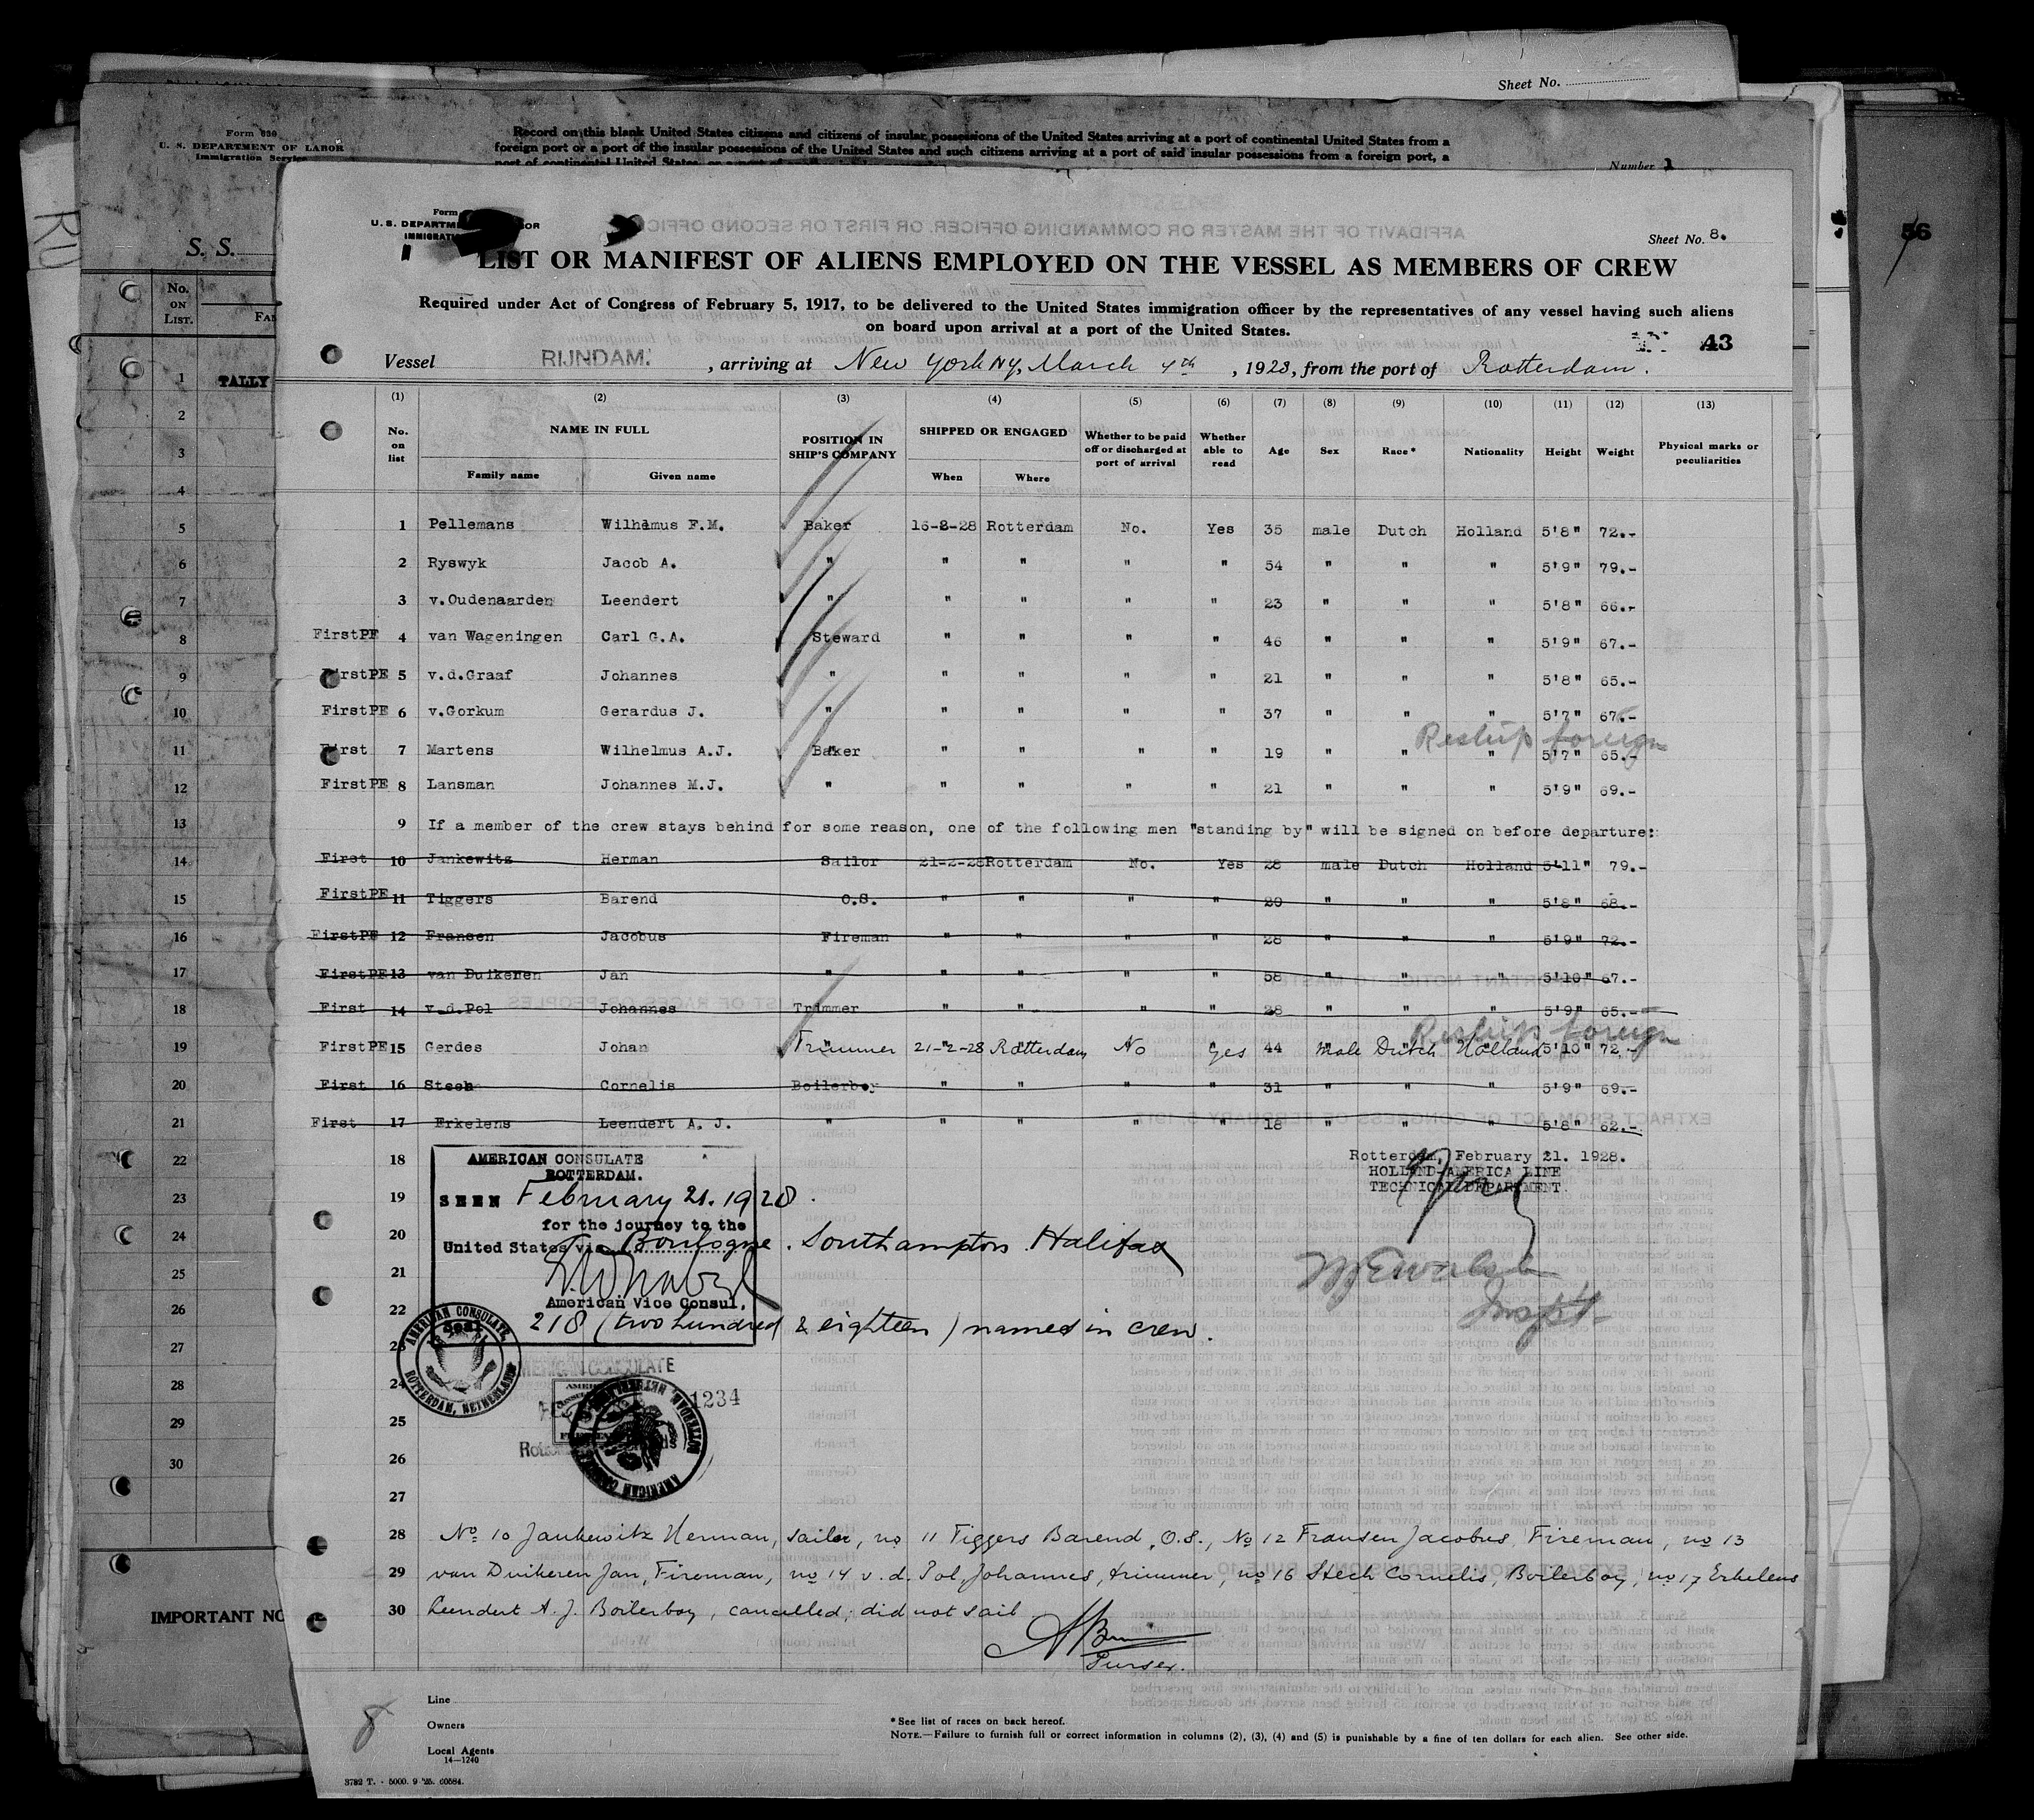 Sheet No.
Form 630
U. S. DEPARTMENT OF LABOR
Immigration Service
Record on this blank United States citizens and citizens of insular possessions of the United States arriving at a port of continental United States from a
foreign port or a port of the insular possessions of the United States and such citizens arriving at a port of said insular possessions from a foreign port, a
port of continental United States, or a port of
Number
S. S.
No. on List.
TALLY
IMPORTANT NO
56
Form
U. S. DEPARTM OR
IMMIGRATI
Sheet No. 8.
LIST OR MANIFEST OF ALIENS EMPLOYED ON THE VESSEL AS MEMBERS OF CREW
Required under Act of Congress of February 5, 1917, to be delivered to the United States immigration officer by the representatives of any vessel having such aliens
on board upon arrival at a port of the United States.
43
Vessel RIJNDAM. , arriving at New York NY, March 4th , 1928, from the port of Rotterdam.
(1) (2) (3) (4) (5) (6) (7) (8) (9) (10) (11) (12) (13)
No. on list NAME IN FULL Family name Given name POSITION IN SHIP'S COMPANY SHIPPED OR ENGAGED When Where Whether to be paid off or discharged at port of arrival Whether able to read Age Sex Race* Nationality Height Weight Physical marks or peculiarities
1 Pellemans Wilhelmus F.M. Baker 16-2-28 Rotterdam No. Yes 35 male Dutch Holland 5'8" 72.-
2 Ryswyk Jacob A. " " " " " 54 " " " 5'9" 79.-
3 v.Oudenaarden Leendert " " " " " 23 " " " 5'8" 66.-
FirstPE 4 van Wageningen Carl G.A. Steward " " " " 46 " " " 5'9" 67.-
FirstPE 5 v.d.Graaf Johannes " " " " " 21 " " " 5'8" 65.-
FirstPE 6 v.Gorkum Gerardus J. " " " " " 37 " " " 5'7" 67.-
Reship foreign
First 7 Martens Wilhelmus A.J. Baker " " " " 19 " " " 5'7" 65.-
FirstPE 8 Lansman Johannes M.J. " " " " " 21 " " " 5'9" 69.-
9 If a member of the crew stays behind for some reason, one of the following men "standing by" will be signed on before departure:
First 10 Jankewitz Herman Sailor 21-2-28 Rotterdam No. Yes 28 male Dutch Holland 5'11" 79.-
FirstPE 11 Tiggers Barend O.S. " " " " 20 " " " 5'8" 68.-
FirstPE 12 Fransen Jacobus Fireman " " " " 28 " " " 5'9" 72.-
FirstPE 13 van Duikeren Jan " " " " " 58 " " " 5'10" 67.-
First 14 v.d.Pol Johannes Trimmer " " " " 28 " " " 5'9" 65.-
Reship foreign
FirstPE 15 Gerdes Johan Trimmer 21-2-28 Rotterdam No Yes 44 Male Dutch Holland 5'10" 72.-
First 16 Steeh Cornelis Boilerboy " " " " 31 " " " 5'9" 69.-
First 17 Erkelens Leendert A. J. " " " " " 18 " " " 5'8" 62.-
18 AMERICAN CONSULATE
ROTTERDAM.
Rotterdam, February 21. 1928.
HOLLAND-AMERICA LINE
TECHNICAL DEPARTMENT.
19 SEEN February 21. 1928.
for the journey to the
20 United States via Boulogne. Southampton. Halifax
21
American Vice Consul,
Inspt
22 218 (two hundred & eighteen) named in crew.
23
AMERICAN CONSULATE
ROTTERDAM, NETHERLANDS
24
1234
25
26
27
28 No 10 Jankewitz Herman, sailor, no 11 Tiggers Barend, O.S., No 12 Fransen Jacobus Fireman, no 13
29 van Duikeren Jan, Fireman, no 14 v. d. Pol, Johannes, trimmer, no 16 Steeh Cornelis, Boilerboy, no 17 Erkelens
30 Leendert A. J. Boilerboy, cancelled; did not sail
Purser.
8
Line
Owners
Local Agents
14—1240
* See list of races on back hereof.
NOTE.—Failure to furnish full or correct information in columns (2), (3), (4) and (5) is punishable by a fine of ten dollars for each alien. See other side.
3782 T. - 5000. 9 '25. 60584.